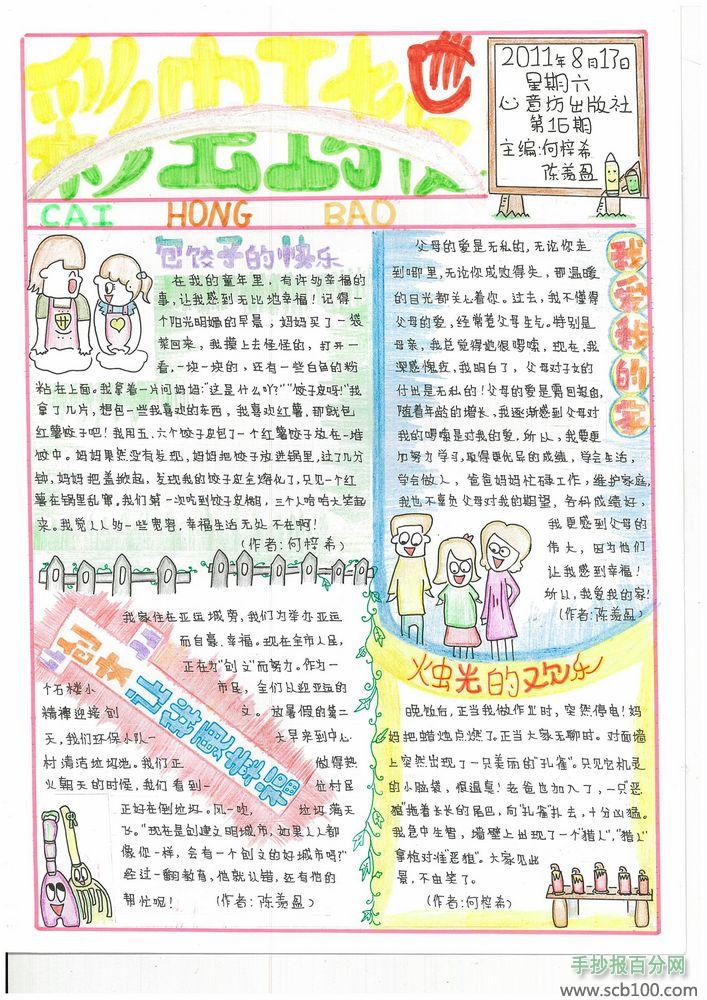 彩虹报
2011年8月17日
星期六
心意坊出版社
第16期
主编:何梓希
陈羡盈
CAI HONG BAO
包饺子的快乐
在我的童年里，有许多幸福的
事，让我感到无比地幸福！记得一
个阳光明媚的早晨，妈妈买了一袋
菜回来，我摸上去怪怪的，打开一
看，一块一块的，还有一些白色的粉
粘在上面。我拿着一片问妈妈:"这是什么吖?""饺子皮呀!"我
拿了几片，想包一些我喜欢的东西，我喜欢红薯，那就包
红薯饺子吧！我用五、六个饺子皮包了一个红薯饺子放在一堆
饺中。妈妈果然没有发现，妈妈把饺子放进锅里，过了几分
钟，妈妈把盖掀起，发现我的饺子皮全熔化了，只见一个红
薯在锅里乱窜。我们第一次吃到饺子皮糊，三个人哈哈大笑起
来。我觉人人多一些宽容，幸福生活无处不在啊！
(作者:何梓希)
我爱我的家
父母的爱是无私的，无论你走
到哪里，无论你成败得失，那温暖
的目光都关心着你。过去，我不懂得
父母的爱，经常惹父母生气。特别是
母亲，我总觉得她很啰嗦，现在，我
深感愧疚，我明白了，父母对子女的
付出是无私的！父母的爱是需回报的，
随着年龄的增长，我逐渐感到父母对
我的啰嗦是对我的爱，所以，我要更
加努力学习，取得更优异的成绩，学会生活，
学会做人，爸爸妈妈忙碌工作，维护家庭，
我也不辜负父母对我的期望，各科成绩好，
我更感到父母的
伟大，因为他们
让我感到幸福！
所以，我爱我的家！
(作者:陈羡盈)
我家住在亚运城旁，我们为举办亚运
而自豪、幸福。现在全市人民，
正在为"创文"而努力。作为一
个石楼小市民，全们以迎亚运的
精神迎接创文。放暑假的第二
天，我们环保小队一大早来到中心
村清洁垃圾池。我们正做得热
火朝天的时候，我们看到一位村民
正好在倒垃圾。风一吹，垃圾满天
飞。"现在是创建文明城市，如果人人都
像你一样，会有一个创文的好城市吗?"
经过一翻教育，他就认错，还有他的
帮忙呢！ (作者:陈羡盈)
烛光的欢乐
晚饭后，正当我做作业时，突然停电！妈
妈把蜡烛点燃了。正当大家无聊时。对面墙
上突然出现了一只美丽的"孔雀"。只见它机灵
的小脑袋，很温馨！老爸也加入了，一只"恶
狼"拖着长长的尾巴，向"孔雀"扑去，十分凶猛。
我急中生智，墙壁上出现了一个"猎人"，"猎人"
拿枪对准"恶狼"。大家见此
景，不由笑了。
(作者:何梓希)
手抄报百分网
www.scb100.com